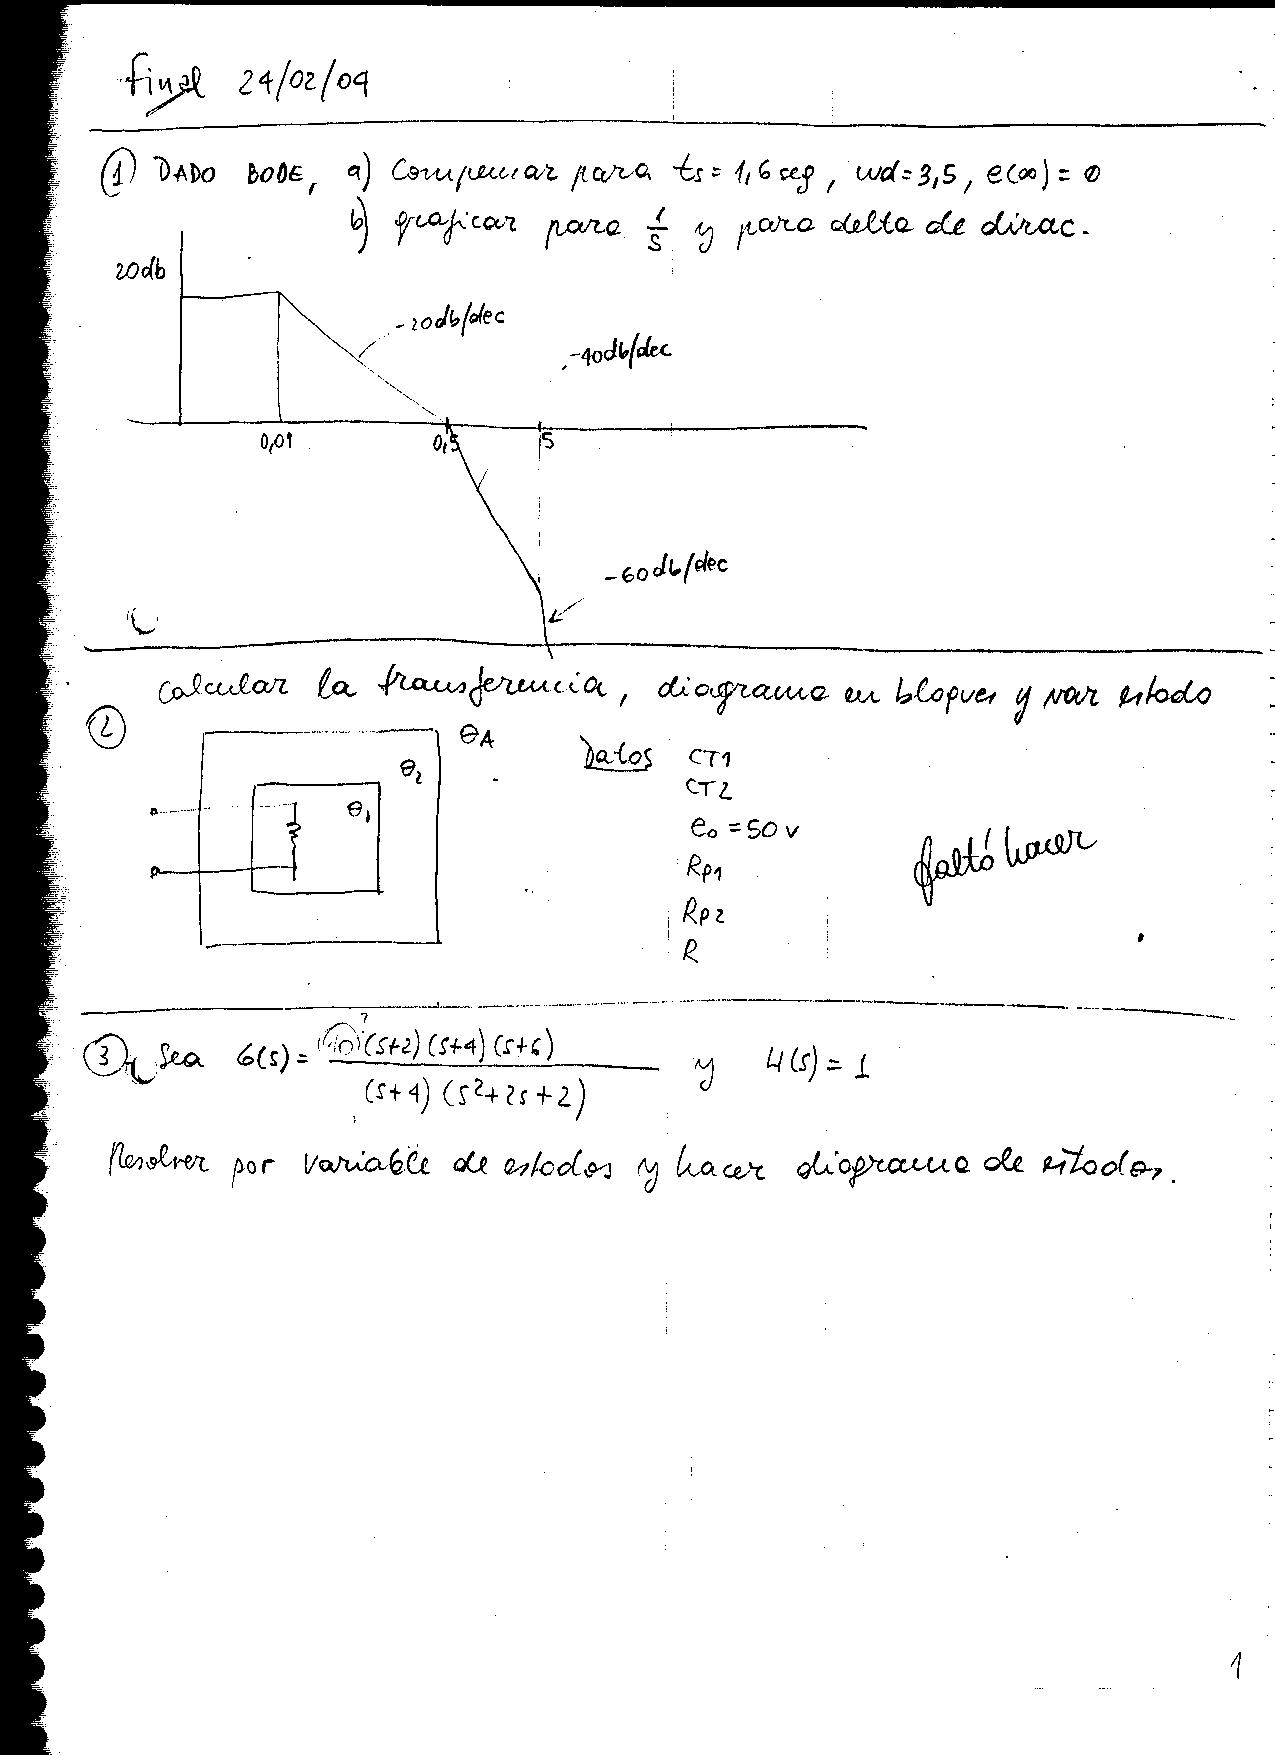 final 24/02/09
① DADO BODE, a) Compensar para ts = 1,6 seg, wd = 3,5, e(∞) = 0
b) graficar para 1/s y para delta de dirac.
20db
-20db/dec
-40db/dec
0,01 0,5 5
-60db/dec
calcular la transferencia, diagrama en bloques y var estado
②
θA
θ2
θ1
Datos CT1
CT2
e0 = 50 v
Rp1
Rp2
R
faltó hacer
?
③ Sea G(s) = (s+2)(s+4)(s+6) / (s+4)(s²+2s+2) y H(s) = 1
Resolver por variable de estados y hacer diagrama de estados.
1